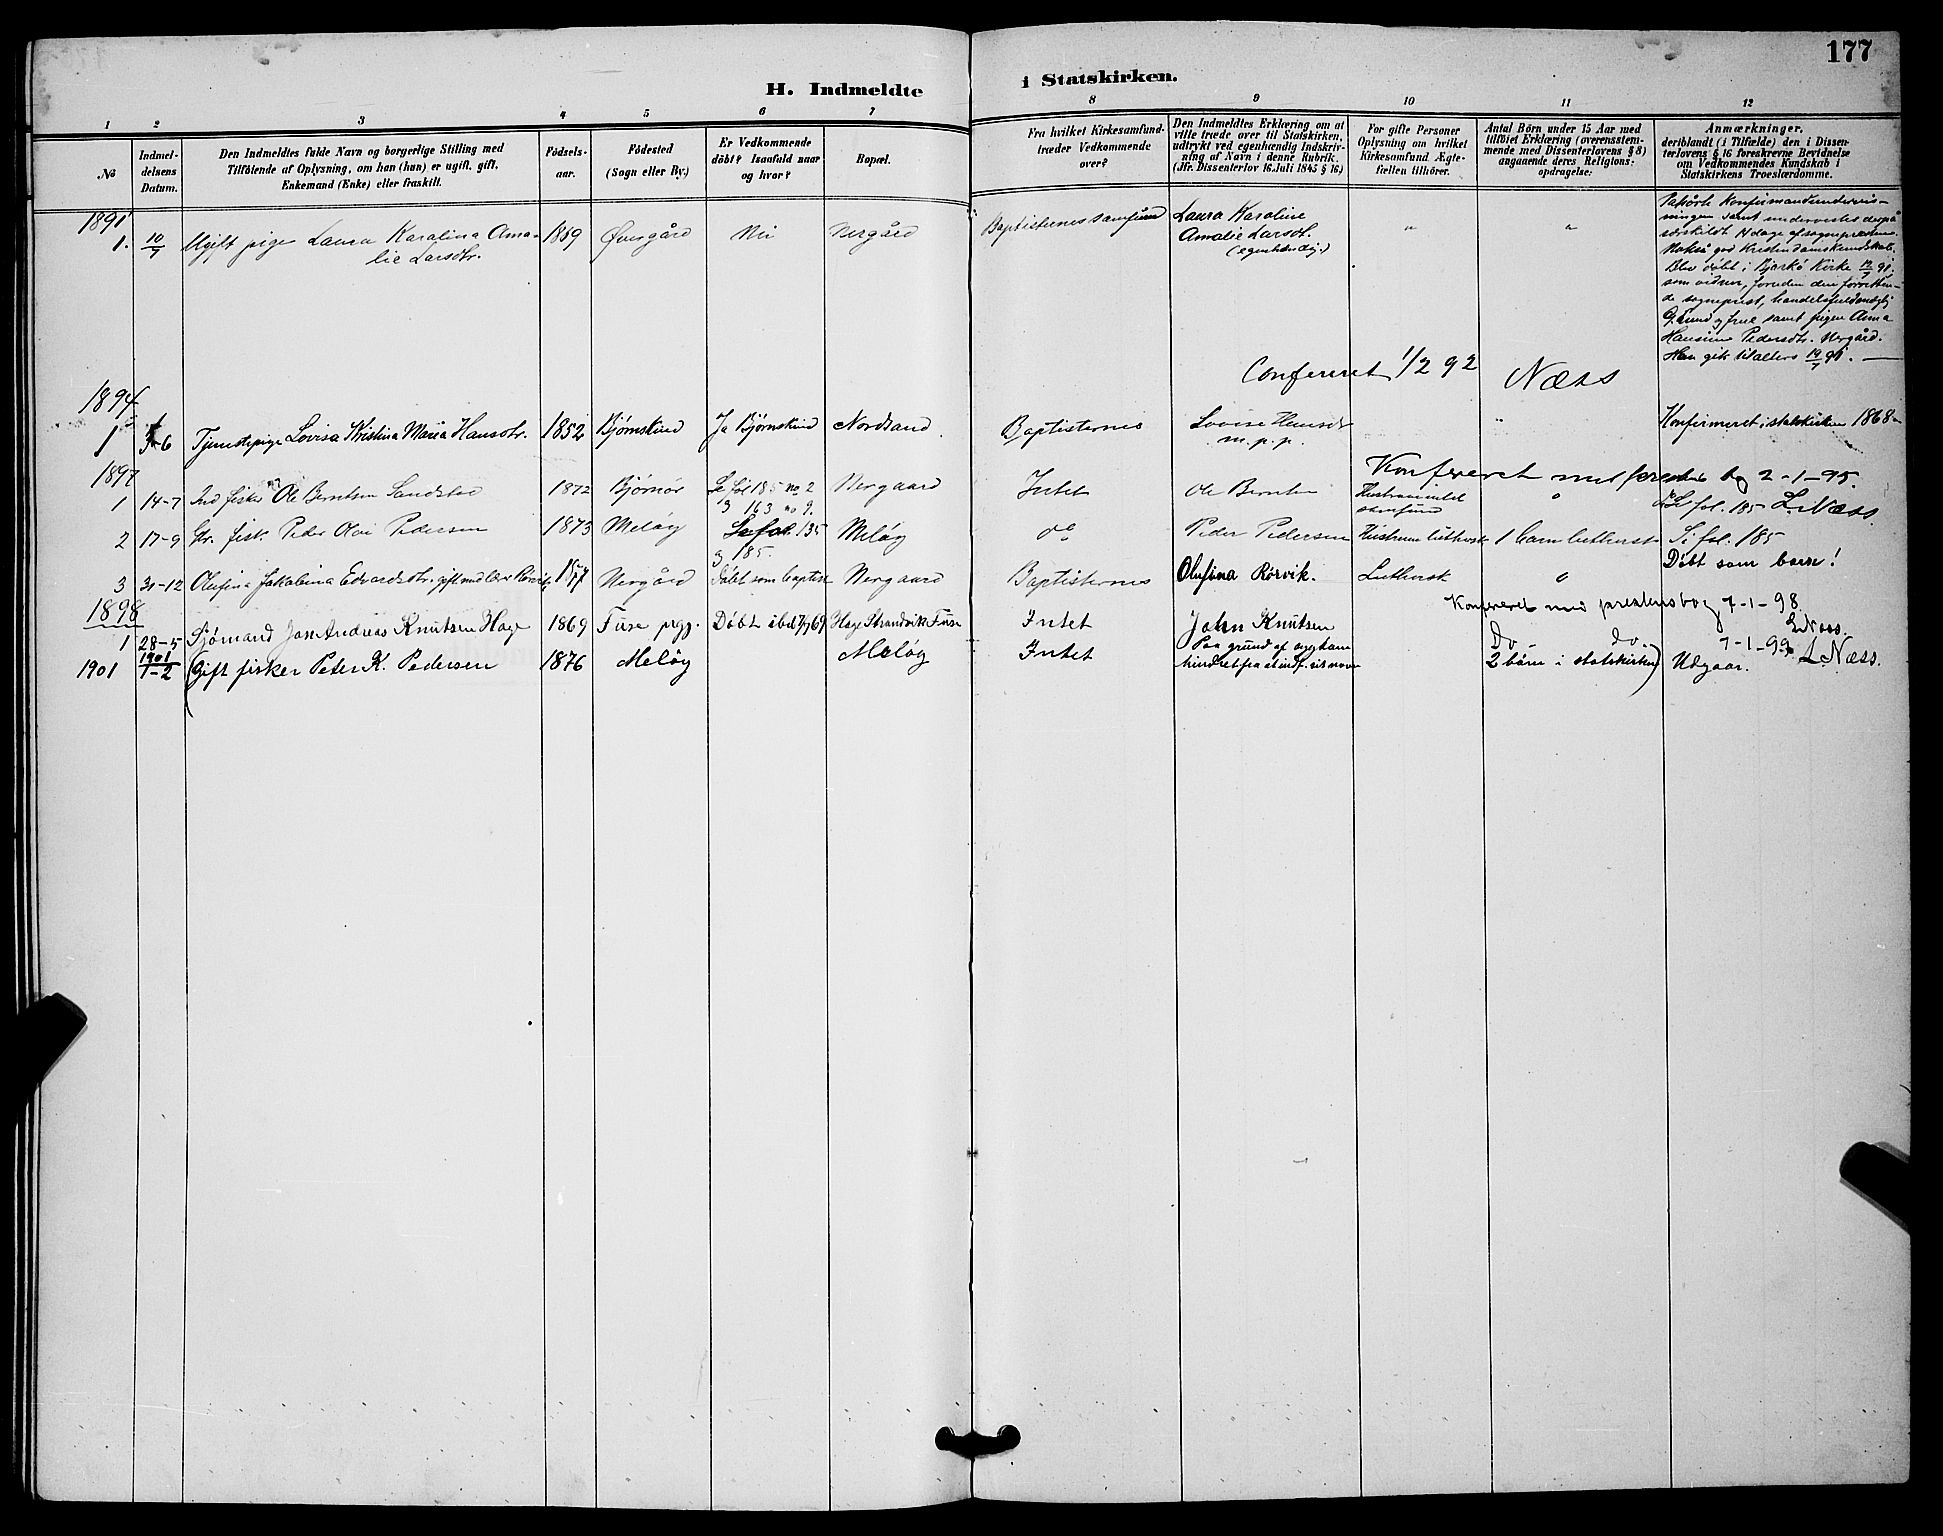 177
H. Indmeldte i Statskirken.
1 2 3 4 5 6 7 8 9 10 11 12
No
Indmel-
delsens
Datum.
Den Indmeldtes fulde Navn og borgerlige Stilling med
Tilföiende af Oplysning, om han (hun) er ugift, gift,
Enkemand (Enke) eller fraskilt.
Födsels-
aar.
Födested
(Sogn eller By.)
Er Vedkommende
döbt? Isaafald naar
og hvor?
Bopæl.
Fra hvilket Kirkesamfund
træder Vedkommende
over?
Den Indmeldtes Erklæring om at
ville træde over til Statskirken,
udtrykt ved egenhændig Indskriv-
ning af Navn i denne Rubrik.
(Jfr. Dissenterlov 16. Juli 1845 § 16.)
For gifte Personer
Oplysning om hvilket
Kirkesamfund Ægte-
fællen tilhörer.
Antal Börn under 15 Aar med
tilföiet Erklæring (overensstem-
mende med Dissenterlovens § 8)
angaaende deres Religions-
opdragelse:
Anmærkninger,
deriblandt (i Tilfælde) den i Dissen-
terlovens § 16 foreskrevne Bevidnelse
om Vedkommendes Kundskab i
Statskirkens Troeslærdomme.
1891
1. 10/7 Ugift pige Laura Karolina Ama-
lie Larsdtr.
1859 Øvergård Nei Nergård Baptisternes samfund
Laura Karoline
Amalie Larsdt.
(egenhændig.)
" "
Påhørte konfirmandundervis-
ningen samt undervistes derpå
særskildt 14 dage af sognepræsten.
god Kristendomskundskab.
Blev døbt i Bjarkö Kirke 12/7 91.
som vidner, foruden den forretten-
de sogneprest, handelsfuldmægtig
G. Lund og frue samt pigen Anna
Hansine Pedersdtr. Nergård.
Hun gik til alters 19/7 91.
Confereret 1/2 92 Næss
1894
1 5-6 Tjenestepige Lovisa Kristina Maria Hansdtr. 1852 Bjørnskind Ja Bjørnskind Nordsand Baptisternes Lovise Hansdr
m.p.p.
" Konfirmeret i statskirken 1868
Konfereret med prestens bog 2-1-95.
L. Næss.
1897
1 14-7 fisker Ole Berntsen Sandstad 1872 Bjørnör Se fol 185 no 2
og 163 no 9.
Nergaard Intet Ole Berntsen Hustru
samfund
" Se fol. 185
2 17-9 Gr. fisk Peder Olai Pedersen 1873 Meløy Se fol. 135
og 185.
Meløy do Peder Pedersen Hustrum luthersk 1 barn luthersk Se fol. 185
3 31-12 Olufina Jakobina Edvardsdtr. gift med Rørvik 1877 Nergård Døbt som baptist Nergaard Baptisternes Olufina Rörvik. Luthersk " Døbt som barn!
Konfereret med prestens bog 7-1-98
L Næss.
1898
1 28-5 Sjømand Jon Andreas Knutsen Hage 1869 Fuse prgj. Døbt 69 Hage Strandvik Fuse Intet John Knutsen
Do do 7-1-99 L. Næss.
1901 1901
7-2 (Gift fisker Peter K. Pedersen 1876 Meløy Meløy Intet Paa grund af sygdom
hindret fra at indf. sit navn
2 børn i statskirken) Udgaar.